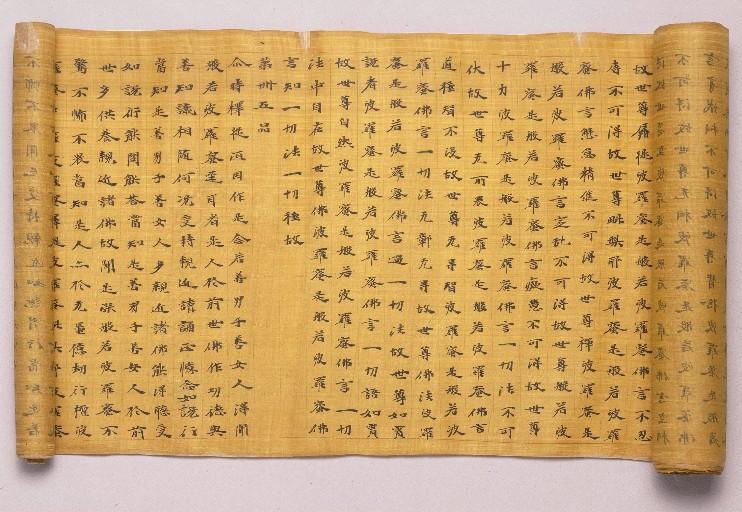 故世尊羼提波羅蜜是般若波羅蜜佛言不忍
辱不可得故世尊毗梨耶波羅蜜是般若波羅
蜜佛言懈怠精進不可得故世尊禪波羅蜜是
般若波羅蜜佛言定乱不可得故世尊般若波
羅蜜是般若波羅蜜佛言癡慧不可得故世尊
十力波羅蜜是般若波羅蜜佛言一切法不可
伏故世尊无所畏波羅蜜是般若波羅蜜佛言
道種智不沒故世尊无㝵智波羅蜜是般若波
羅蜜佛言一切法无鄣无㝵故世尊佛法波羅
蜜是般若波羅蜜佛言過一切法故世尊如實
說者波羅蜜是般若波羅蜜佛言一切語如實
故世尊自然波羅蜜是般若波羅蜜佛言一切
法中自在故世尊佛波羅蜜是般若波羅蜜佛
言知一切法一切種故
第卌五品
尒時釋提洹因作是念若善男子善女人得聞
般若波羅蜜逕耳者是人於前世佛作功德與
善知識相隨何況受持親近讀誦正憶念如說行
當知是善男子善女人多親近諸佛能得聽受
如說行能問能荅當知是善男子善女人於前
世多供養親近諸佛故聞是深般若波羅蜜不
驚不怖不畏當知是人亦於无量億劫行檀波